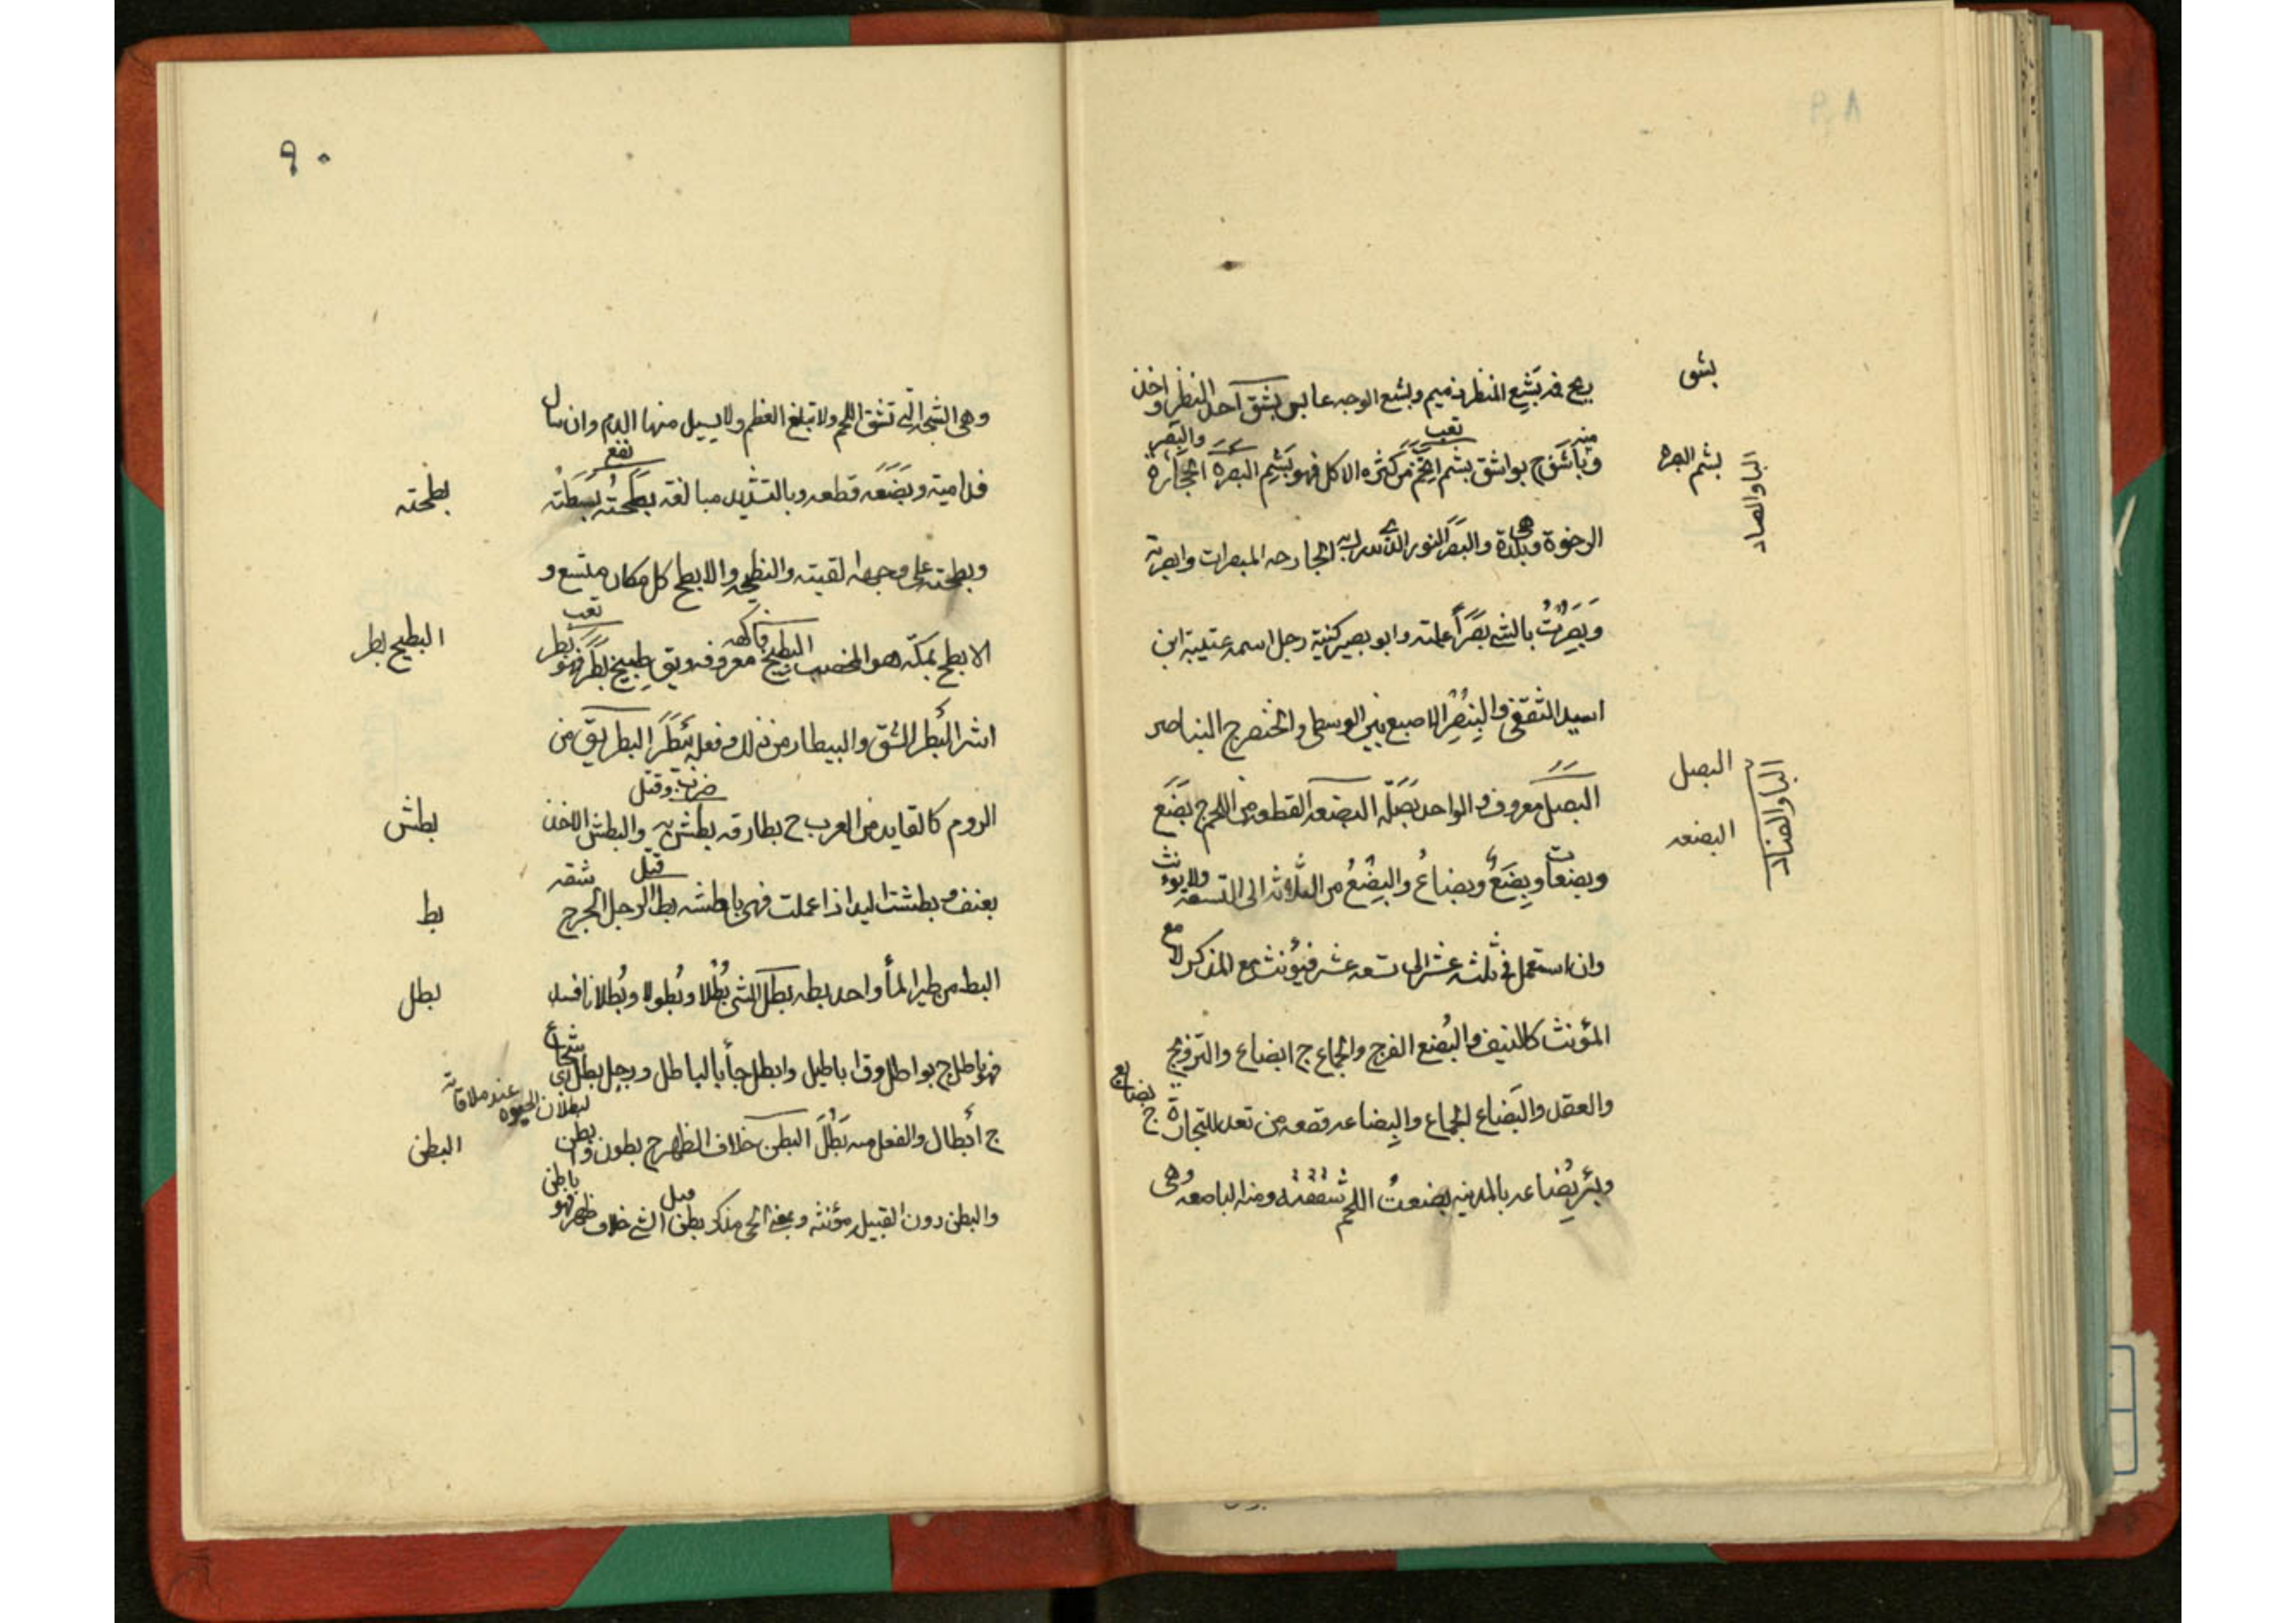 ٨٩
بشق
ريح فمه بَشِع المنظر ذميم وبشع الوجه عابس بشق احدّ النظر واخذ
تعب
منه والبَصر
بشم البصرة
الباء والصاد
وبَاشَق ج بواشق بشم اتخم من كثرة الاكل فهو بَشِم البصرة الحجارة
الرخوة وهى بلدة والبَصَر النور الذي تدرك به الجارحه المبصرات وابصرته
وَبَصُرْتُ بالشئ بَصَراً علمته وابو بصير كنية رجل اسمه عتيبة ابن
اسيد الثقفي والبِنْصِر الاصبع بين الوسطى والخنصر ج البناصر
البصل
الباء والضاد
البصل معروف والواحد بَصَلَة البضعه القطعه من اللحم ج بَضَع
البضعه
وبضعات وبِضَعٌ وبضاعٌ والبِضْعُ من الثلاثه الى التسعه ولا يؤنث
وان استعمل في ثلثه عشر الى تسعه عشر فيؤنث مع المذكر لا مع
المؤنث كالنيف والبُضع الفرج والجماع ج ابضاع والتزويج
والعقد والبَضاع الجماع والبِضاعه قطعه من تعد للتجارة ج بضايع
وبئر بُضاعه بالمدينه بضعتُ اللحم شققته ومنه الباضعه وهى
٩٠
وهى الشجة التي تشق اللحم ولا تبلغ العظم ولا يسيل منها الدم وان سال
نفع
فدامية وبَضَعَه قطعه وبالتشديد مبالغة بَطَحْتُه بَسَطتُه
بطحته
وبطحته على وجهه القيته والبطيحه والابطح كل مكان متسع و
الابطح بمكّة هو المحصب البطيخ فاكهه معروفه ويق طِبيخ بَطَرَ فهو بَطِر
تعب
البطيخ بطر
اشر البَطر الشق والبيطار من ذلك وفعله بَيْطَرَ البطريق من
ضرب وقتل
الروم كالقايد من العرب ج بطارقه بطش به والبطش الاخذ
بطش
بعنف وبطشت اليد اذا عملت فهى باطشه بط الرجل الجرح شقه
قتل
بط
البط من طير الماء واحده بطه بطل الشئ بُطْلا وبُطولا وبُطلانا فسد
بطل
فهو باطل ج بواطل وق اباطيل وابطل جاء بالباطل ورجل بطل اى شجاع
لبطلان الحيوه عند ملاقاته
ج أبطال والفعل منه بَطُلَ البطن خلاف الظهر ج بطون وابطن
البطن
والبطن دون القبيله مؤنثه وبمعنى الحي مذكر بطن الشئ خلاف ظهر فهو باطن
قتل